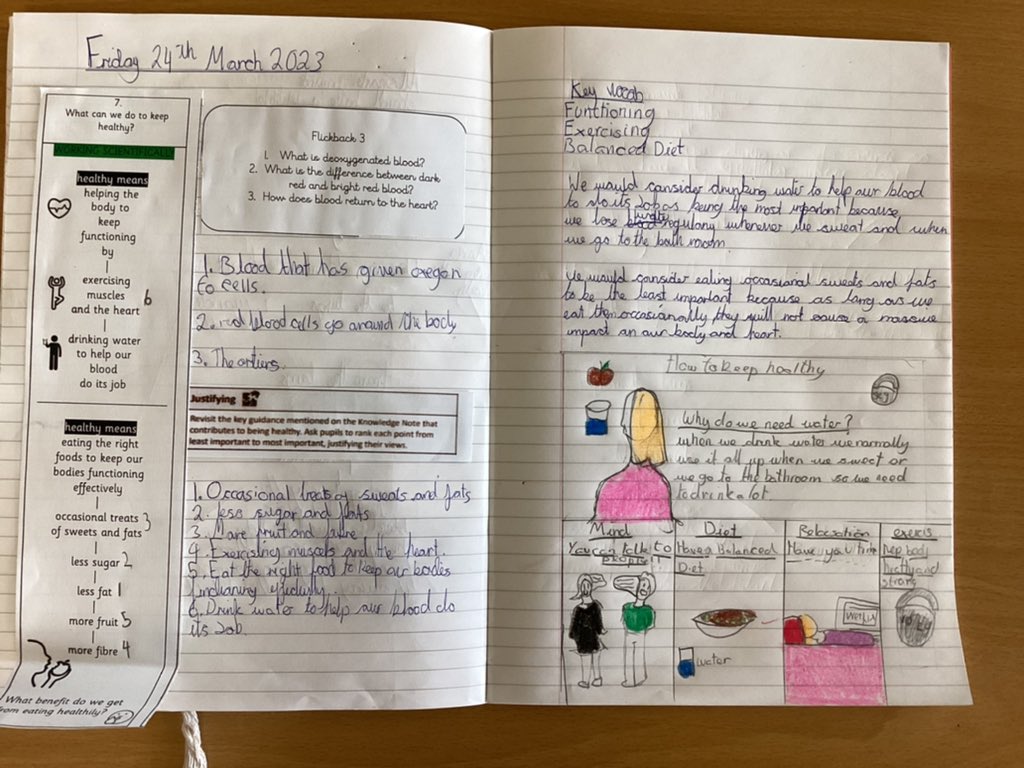 Friday 24th March 2023
7.
What can we do to keep
healthy?
WORKING SCIENTIFICALLY
healthy means
helping the
body to
keep
functioning
by
exercising
muscles
and the heart 6
drinking water
to help our
blood
do its job
healthy means
eating the right
foods to keep our
bodies functioning
effectively
occasional treats 3
of sweets and fats
less sugar 2
less fat 1
more fruit 5
more fibre 4
What benefit do we get
from eating healthily?
Flickback 3
1. What is deoxygenated blood?
2. What is the difference between dark
red and bright red blood?
3. How does blood return to the heart?
1. Blood that has given oxegen
to cells.
2. red blood cells go around the body
3. The artiers.
Justifying
Revisit the key guidance mentioned on the Knowledge Note that
contributes to being healthy. Ask pupils to rank each point from
least important to most important, justifying their views.
1. Occasional treats of sweats and fats
2. less sugar and fats
3. More fruit and fibre
4. Exercising muscels and the heart.
5. Eat the right food to keep our bodies
effectivly
6. Drink water to help our blood do
its Job.
Key Vocab
Functioning
Exercising
Balanced Diet
We would consider drinking water to help our blood
to its Job as being the most important because
we lose water regulary whenever we sweat and when
we go to the bath room.
We would consider eating occasional sweets and fats
to be the least important because as long as we
eat them occasionally they will not cause a massive
impact on our body and heart.
How to keep healthy
Why do we need water?
when we drink water we normally
use it all up when we sweat or
we go to the bathroom so we need
to drink a lot.
Mind
You can talk to
people!
Diet
Have a Balanced
Diet.
water
Relaxation
Have you time
exercis
body
and
strong